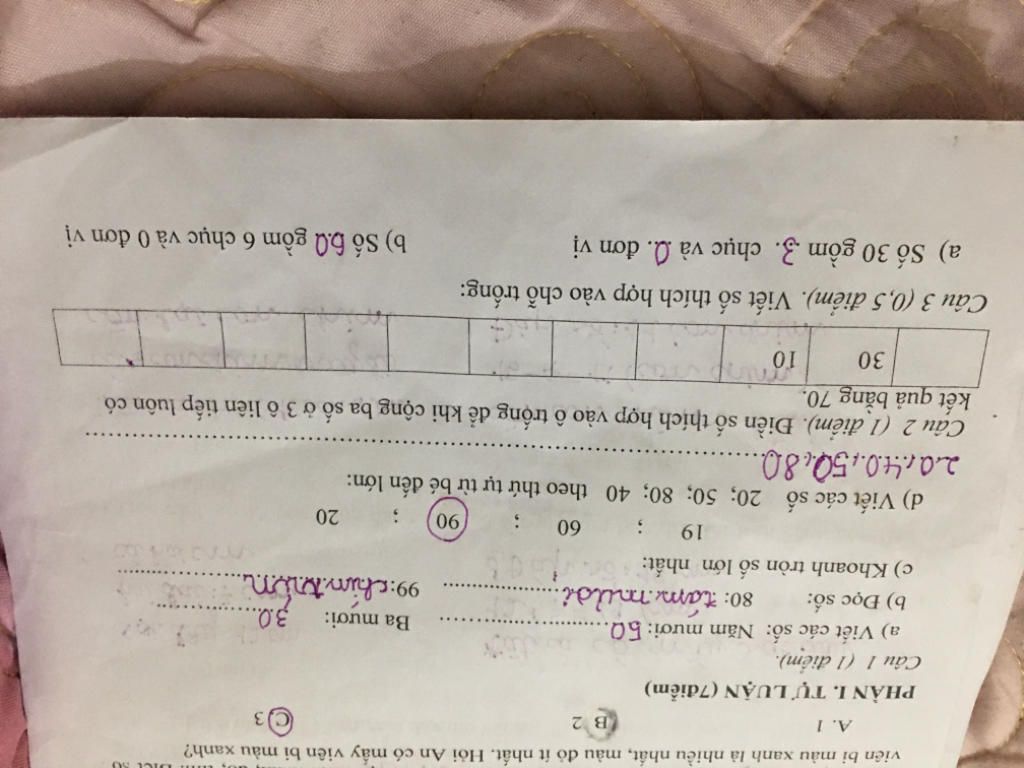 viên bi màu xanh là nhiều nhất, màu đỏ ít nhất. Hỏi An có mấy viên bi màu xanh?
A. 1 B 2 C 3
PHẦN I. TỰ LUẬN (7điểm)
Câu 1 (1 điểm).
a) Viết các số: Năm mươi: 50 Ba mươi: 30
b) Đọc số: 80: tám mươi 99: chín
c) Khoanh tròn số lớn nhất:
19 ; 60 ; 90 ; 20
d) Viết các số 20; 50; 80; 40 theo thứ tự từ bé đến lớn:
20, 40, 50, 80
Câu 2 (1 điểm). Điền số thích hợp vào ô trống để khi cộng ba số ở 3 ô liên tiếp luôn có
kết quả bằng 70.
30 10
Câu 3 (0,5 điểm). Viết số thích hợp vào chỗ trống:
a) Số 30 gồm 3. chục và 0. đơn vị b) Số 60 gồm 6 chục và 0 đơn vị